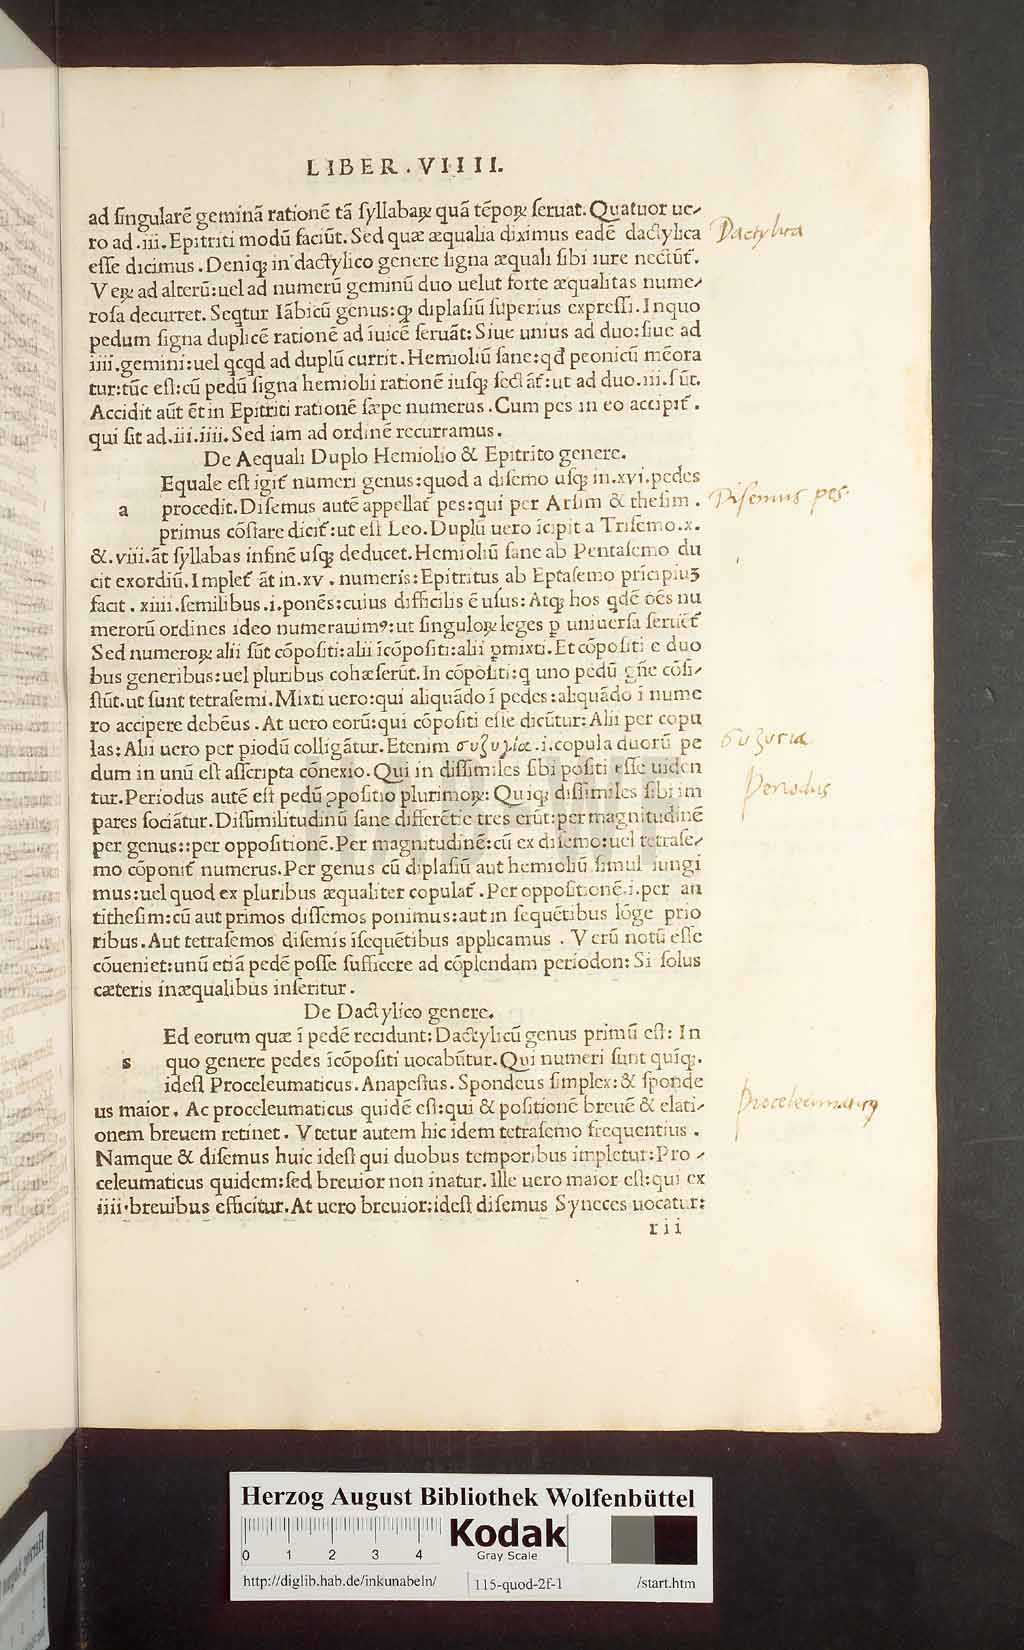 LIBER.VIIII.
ad singularē geminā rationē tā syllabaꝝ quā tēpoꝝ seruat. Quatuor ue-
ro ad.iii.Epitriti modū faciūt. Sed quæ æqualia diximus eadē dactylica
esse dicimus. Deniqꝫ in dactylico genere signa æquali sibi iure nectūt̃.
Veꝝ ad alterū:uel ad numerū geminū duo uelut forte æqualitas nume-
rosa decurret. Seqtur Iābicū genus:qꝫ diplasiū superius expressi. In quo
pedum signa duplicē rationē ad iuicē seruāt: Siue unius ad duo:siue ad
iiii.gemini:uel qcqd ad duplū currit. Hemioliū sane:qđ peonicū mēora
tur:tūc est:cū pedū signa hemiolii rationē iusqꝫ sectāt̃:ut ad duo.iii.sūt.
Accidit aūt ēt in Epitriti rationē sæpe numerus. Cum pes in eo accipit̃.
qui sit ad.iii.iiii. Sed iam ad ordinē recurramus.
De Aequali Duplo Hemiolio & Epitrito genere.
Equale est igit̃ numeri genus:quod a disemo usqꝫ in.xvi.pedes
a procedit. Disemus autē appellat̃ pes:qui per Arsim & thesim.
primus cōstare dicit̃:ut est Leo. Duplū uero īcipit a Trisemo.x.
&.viii.āt syllabas infinē usqꝫ deducet. Hemioliū sane ab Pentasemo du
cit exordiū. Implet̃ āt in.xv.numeris: Epitritus ab Eptasemo prīcipiuꝫ
facit.xiiii.semilibus.i.ponēs:cuius difficilis ē usus: Atqꝫ hos qdē oēs nu
merorū ordines ideo numerauimꝰ:ut singuloꝝ leges ꝑ uniuersa seruēt̃
Sed numeroꝝ alii sūt cōpositi:alii īcōpositi:alii ꝑmixti. Et cōpositi e duo
bus generibus:uel pluribus cohæserūt. In cōpositi:q uno pedū gñe cōsi-
stūt.ut sunt tetrasemi. Mixti uero:qui aliquādo ī pedes:aliquādo ī nume
ro accipere debēus. At uero eorū:qui cōpositi esse dicūtur: Alii per copu
las: Alii uero per piodū colligātur. Etenim συζυγίαε.i.copula duorū pe
dum in unū est asscripta cōnexio. Qui in dissimiles sibi positi esse uiden
tur. Periodus autē est pedū ꝓpositio plurimoꝝ: Quiqꝫ dissimiles sibi im
pares sociātur. Dissimilitudinū sane differētie tres erūt:per magnitudinē
per genus::per oppositionē. Per magnitudinē:cū ex disemo:uel tetrase-
mo cōponit̃ numerus. Per genus cū diplasiū aut hemioliū simul iungi
mus:uel quod ex pluribus æqualiter copulat̃. Per oppositionē.i.per an
tithesim:cū aut primos dissemos ponimus:aut in sequētibus lōge prio
ribus. Aut tetrasemos disemis īsequētibus applicamus. Verū notū esse
cōueniet:unū etiā pedē posse sufficere ad cōplendam periodon: Si solus
cæteris inæqualibus inseritur.
De Dactylico genere.
Ed eorum quæ ī pedē recidunt: Dactylicū genus primū est: In
s quo genere pedes īcōpositi uocabūtur. Qui numeri sunt quīqꝫ.
idest Proceleumaticus. Anapestus. Spondeus simplex: & sponde
us maior. Ac proceleumaticus quidē est:qui & positionē breuē & elati-
onem breuem retinet. Vtetur autem hic idem tetrasemo frequentius.
Namque & disemus huic idest qui duobus temporibus impletur: Pro-
celeumaticus quidem:sed breuior non inatur. Ille uero maior est:qui ex
iiii.breuibus efficitur. At uero breuior:idest disemus Syneces uocatur:
rii
Dactylica
Disemus pes.
συζυγια
Periodus
Proceleumaticꝰ
HAB-WF
Herzog August Bibliothek Wolfenbüttel
Kodak
Gray Scale
0 1 2 3 4
http://diglib.hab.de/inkunabeln/ 115-quod-2f-1 /start.htm